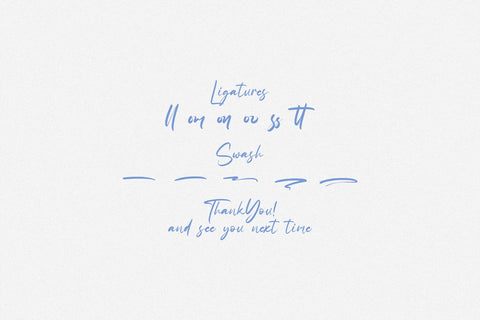 Ligatures
ll om on ov ss tt
Swash
ThankYou!
and see you next time